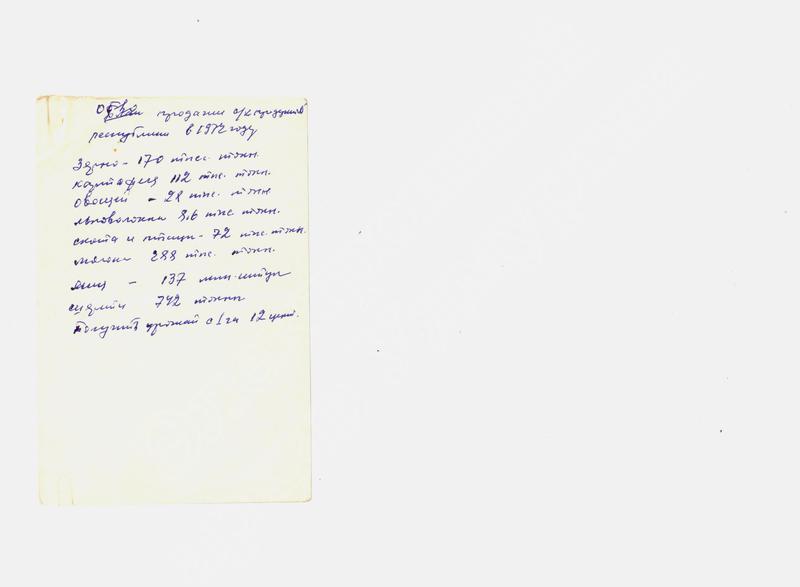 продажи с/х продуктов
республики в 1972 году
Зерно - 170 тыс. тонн.
картофеля 112 тыс. тонн.
овощей - 28 тыс. тонн
льноволокна 3,6 тыс тонн.
скота и птицы - 72 тыс. тонн.
молока 288 тыс. тонн.
яиц - 137 млн. штук
шерсти 742 тонны
Получить урожай с 1 га 12 цент.